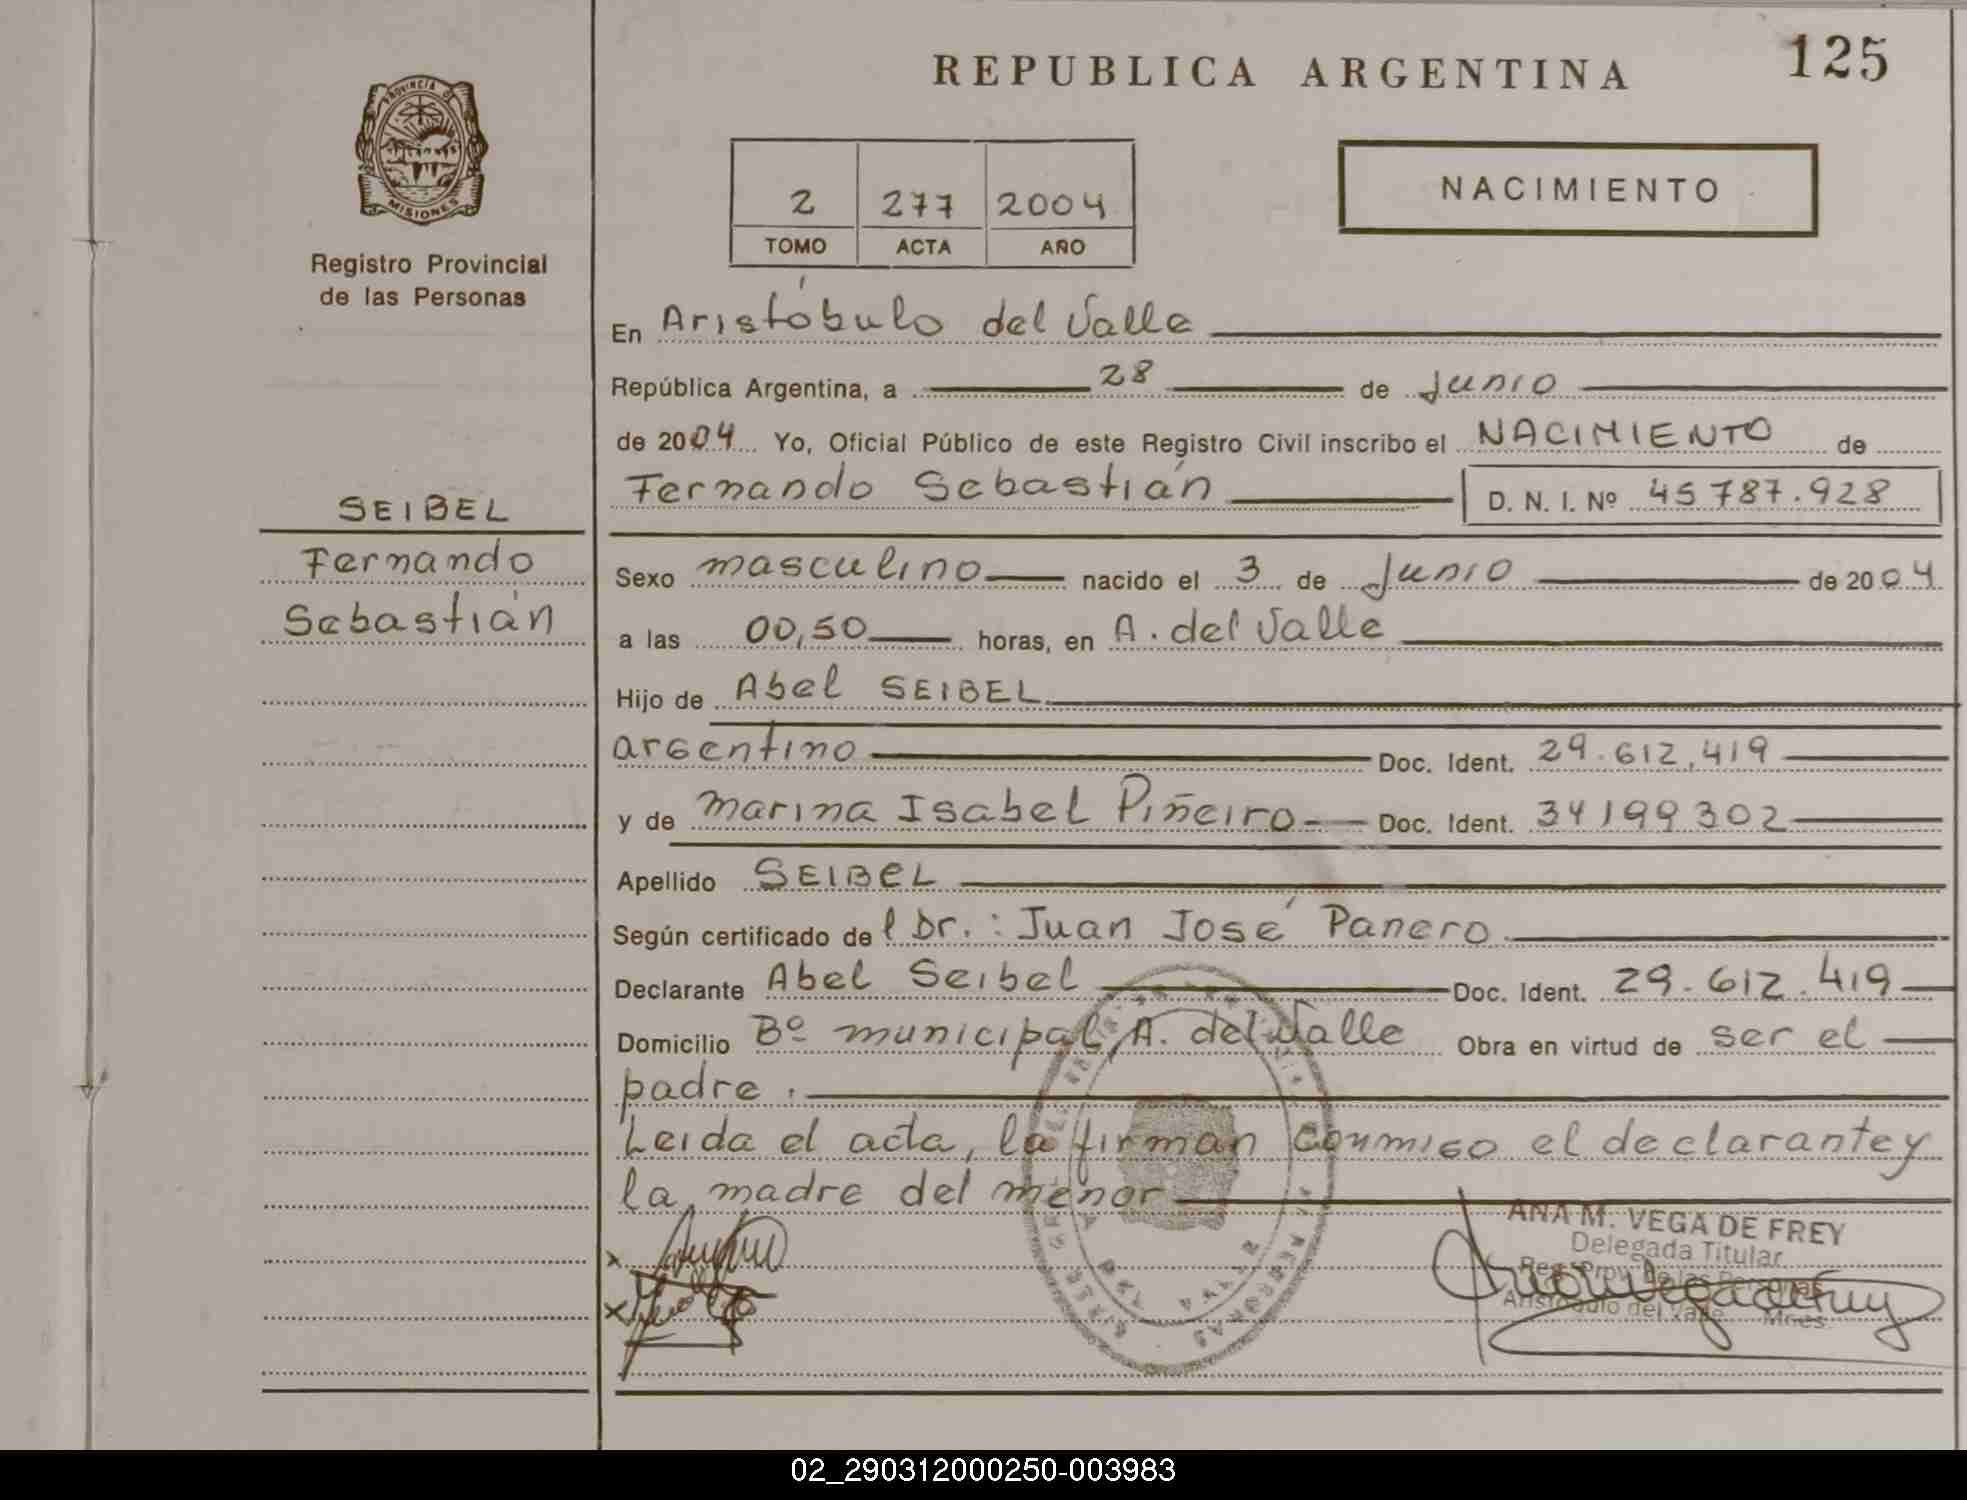 REPUBLICA ARGENTINA 125
PROVINCIA DE
MISIONES
Registro Provincial
de las Personas
2 277 2004
TOMO ACTA AÑO
NACIMIENTO
En Aristóbulo del Valle
República Argentina, a 28 de Junio
de 2004 Yo, Oficial Público de este Registro Civil inscribo el NACIMIENTO de
Fernando Sebastián D. N. I. Nº 45787.928
SEIBEL
Fernando
Sebastián
Sexo masculino nacido el 3 de Junio de 2004
a las 00,50 horas, en A. del Valle
Hijo de Abel SEIBEL
argentino Doc. Ident. 29.612.419
y de Marina Isabel Piñeiro Doc. Ident. 34199302
Apellido SEIBEL
Según certificado del Dr.: Juan José Panero
Declarante Abel Seibel Doc. Ident. 29.612.419
Domicilio Bº municipal, A. del Valle Obra en virtud de ser el
padre.
Leida el acta, la firman conmigo el declarante y
la madre del menor
ANA M. VEGA DE FREY
Delegada Titular
Reg. Prov. de las Personas
Aristóbulo del Valle Mnes.
02_290312000250-003983